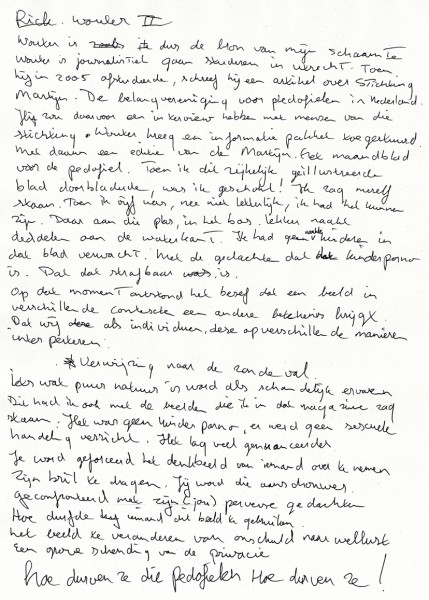 Rick. wouter II
Wouter is dus de bron van mijn schaamte
wouter is journalistiek gaan studeren in utrecht. Toen
hij in 2005 afstudeerde, schreef hij een artikel over Stichting
Martijn. De belangvereniging voor pedofielen in Nederland.
Hij zou daarvoor een interview hebben met mensen van die
stichting. Wouter kreeg een informatie pakket toegestuurd.
met daarin een editie van de Martijn. Het maandblad
voor de pedofiel. Toen ik dit zijkelijk, geïllustreerde
blad doorbladerde, was ik geschokt! Ik zag mezelf
staan. Toen ik vijf was, nee niet letterlijk, ik had het kunnen
zijn. Daar aan die plas, in het bos. lekker naakt
dedelen aan de waterkant. Ik had geen naakte kinderen in
dat blad verwacht. Met de gedachten dat kinderporno
is. Dat dat strafbaar is.
Op dat moment ontstond het besef dat een beeld in
verschillende contexten een andere betekenis krijgt.
Dat wij als individuen, deze op verschillende manieren
interpeteren.
* Verwijzing naar de zondeval.
Iets wat puur natuur is word als schandelijk ervaren
Dit had ik ook met de beelden die ik in dat magazine zag
staan. Het was geen kinder porno, er werd geen seksuele
handeling verricht. Het lag veel genuanceerder
Je word geforceerd het denkbeeld van iemand over te nemen
Zijn bril te dragen. Jij word die aanschouwer.
geconfronteerd met zijn (jou) perverse gedachten
Hoe durfde iemand dit beeld te gebruiken
het beeld te veranderen van onschuld naar wellust
Een grove schending van de privacie
hoe durven ze die pedofielen Hoe durven ze!